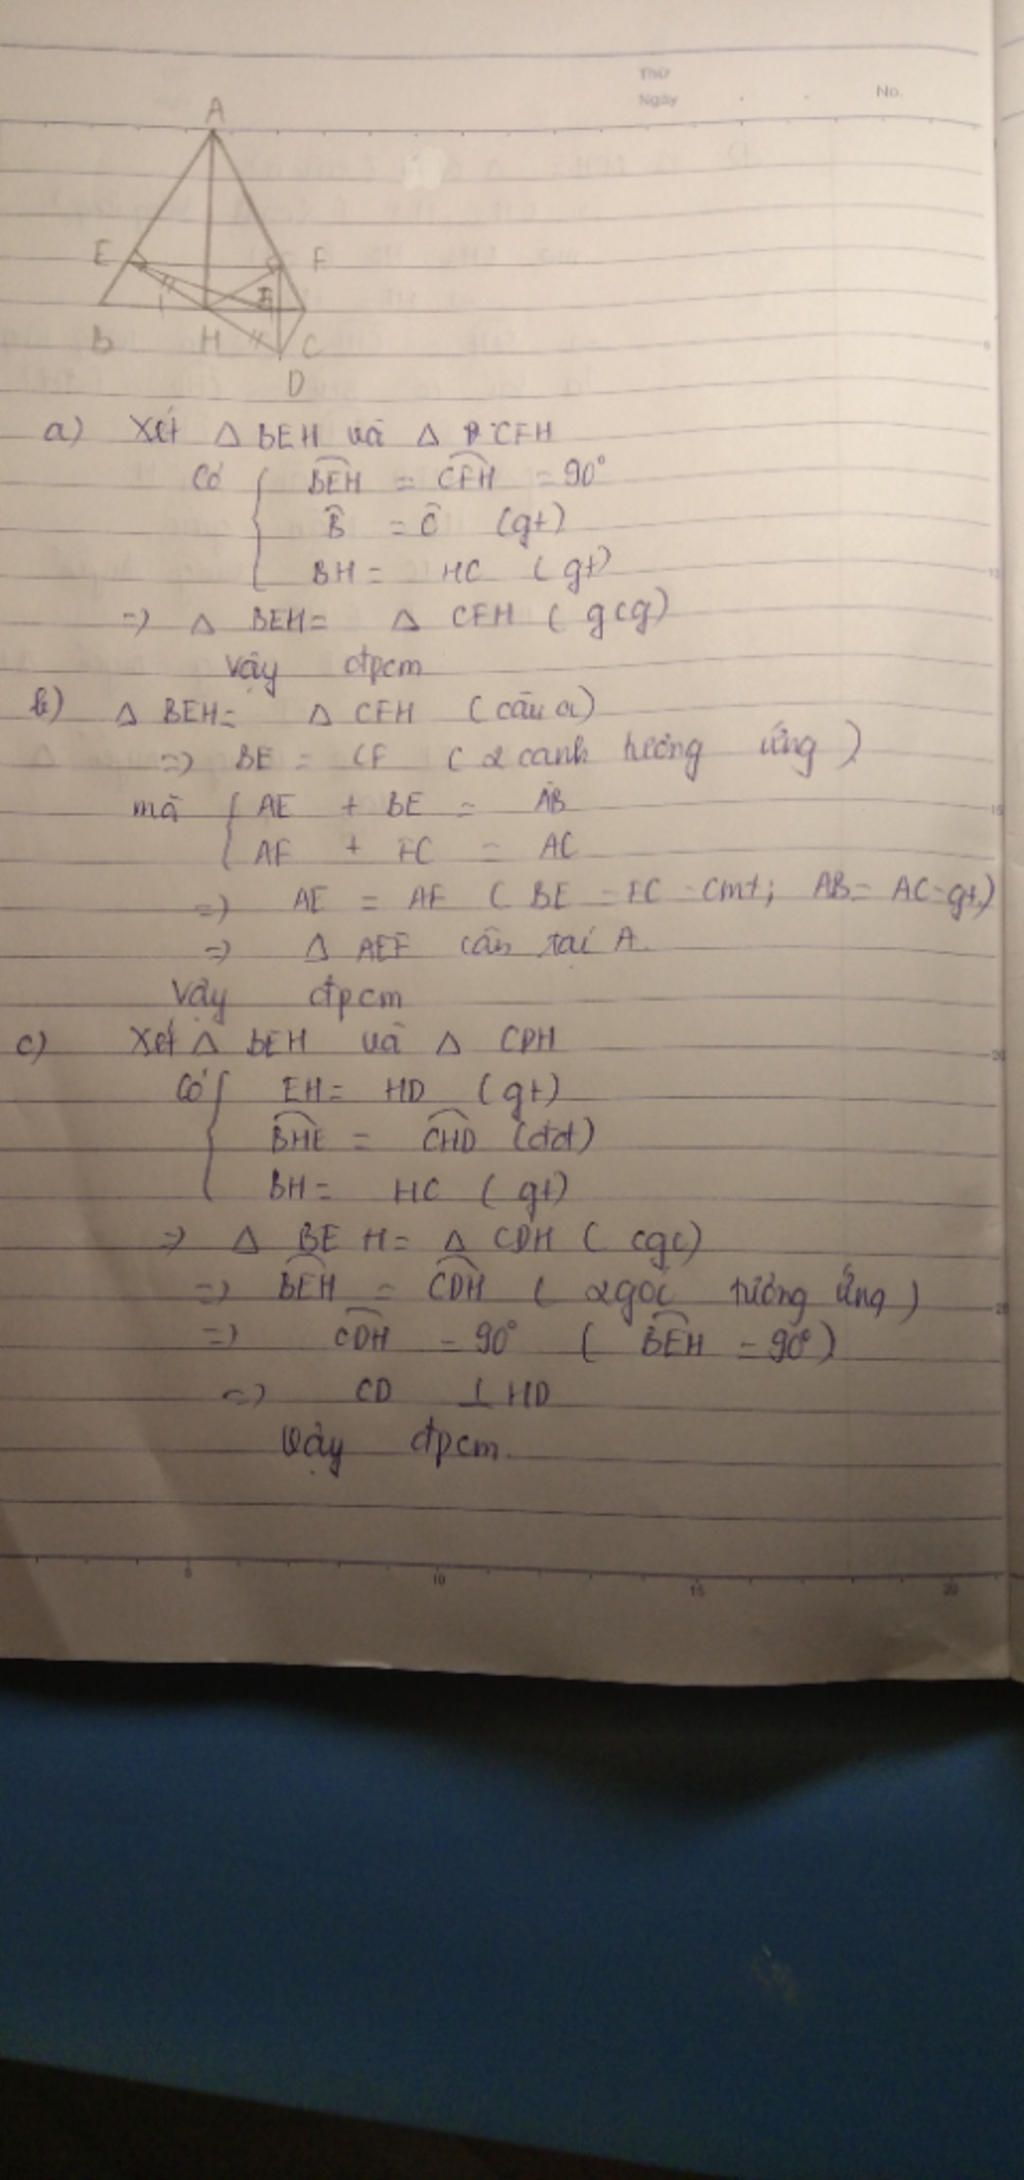 Thứ
Ngày No.
A
E F
B H C
D
a) Xét △ BEH và △ CFH
Có BEH = CFH = 90°
B = C (gt)
BH = HC (gt)
=> △ BEH = △ CFH (gcg)
Vậy đpcm
b) △ BEH = △ CFH (câu a)
=> BE = CF (2 cạnh tương ứng)
mà AE + BE = AB
AF + FC = AC
=> AE = AF (BE = FC - cmt; AB = AC - gt)
=> △ AEF cân tại A.
Vậy đpcm
c) Xét △ BEH và △ CDH
Có EH = HD (gt)
BHE = CHD (đđ)
BH = HC (gt)
=> △ BEH = △ CDH (cgc)
=> BEH = CDH (2 góc tương ứng)
=> CDH = 90° (BEH = 90°)
=> CD ⊥ HD
Vậy đpcm.
5 10 15 20